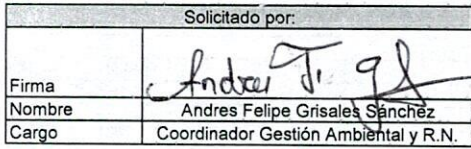 Solicitado por:
Firma
Nombre Andres Felipe Grisales Sánchez
Cargo Coordinador Gestión Ambiental y R.N.